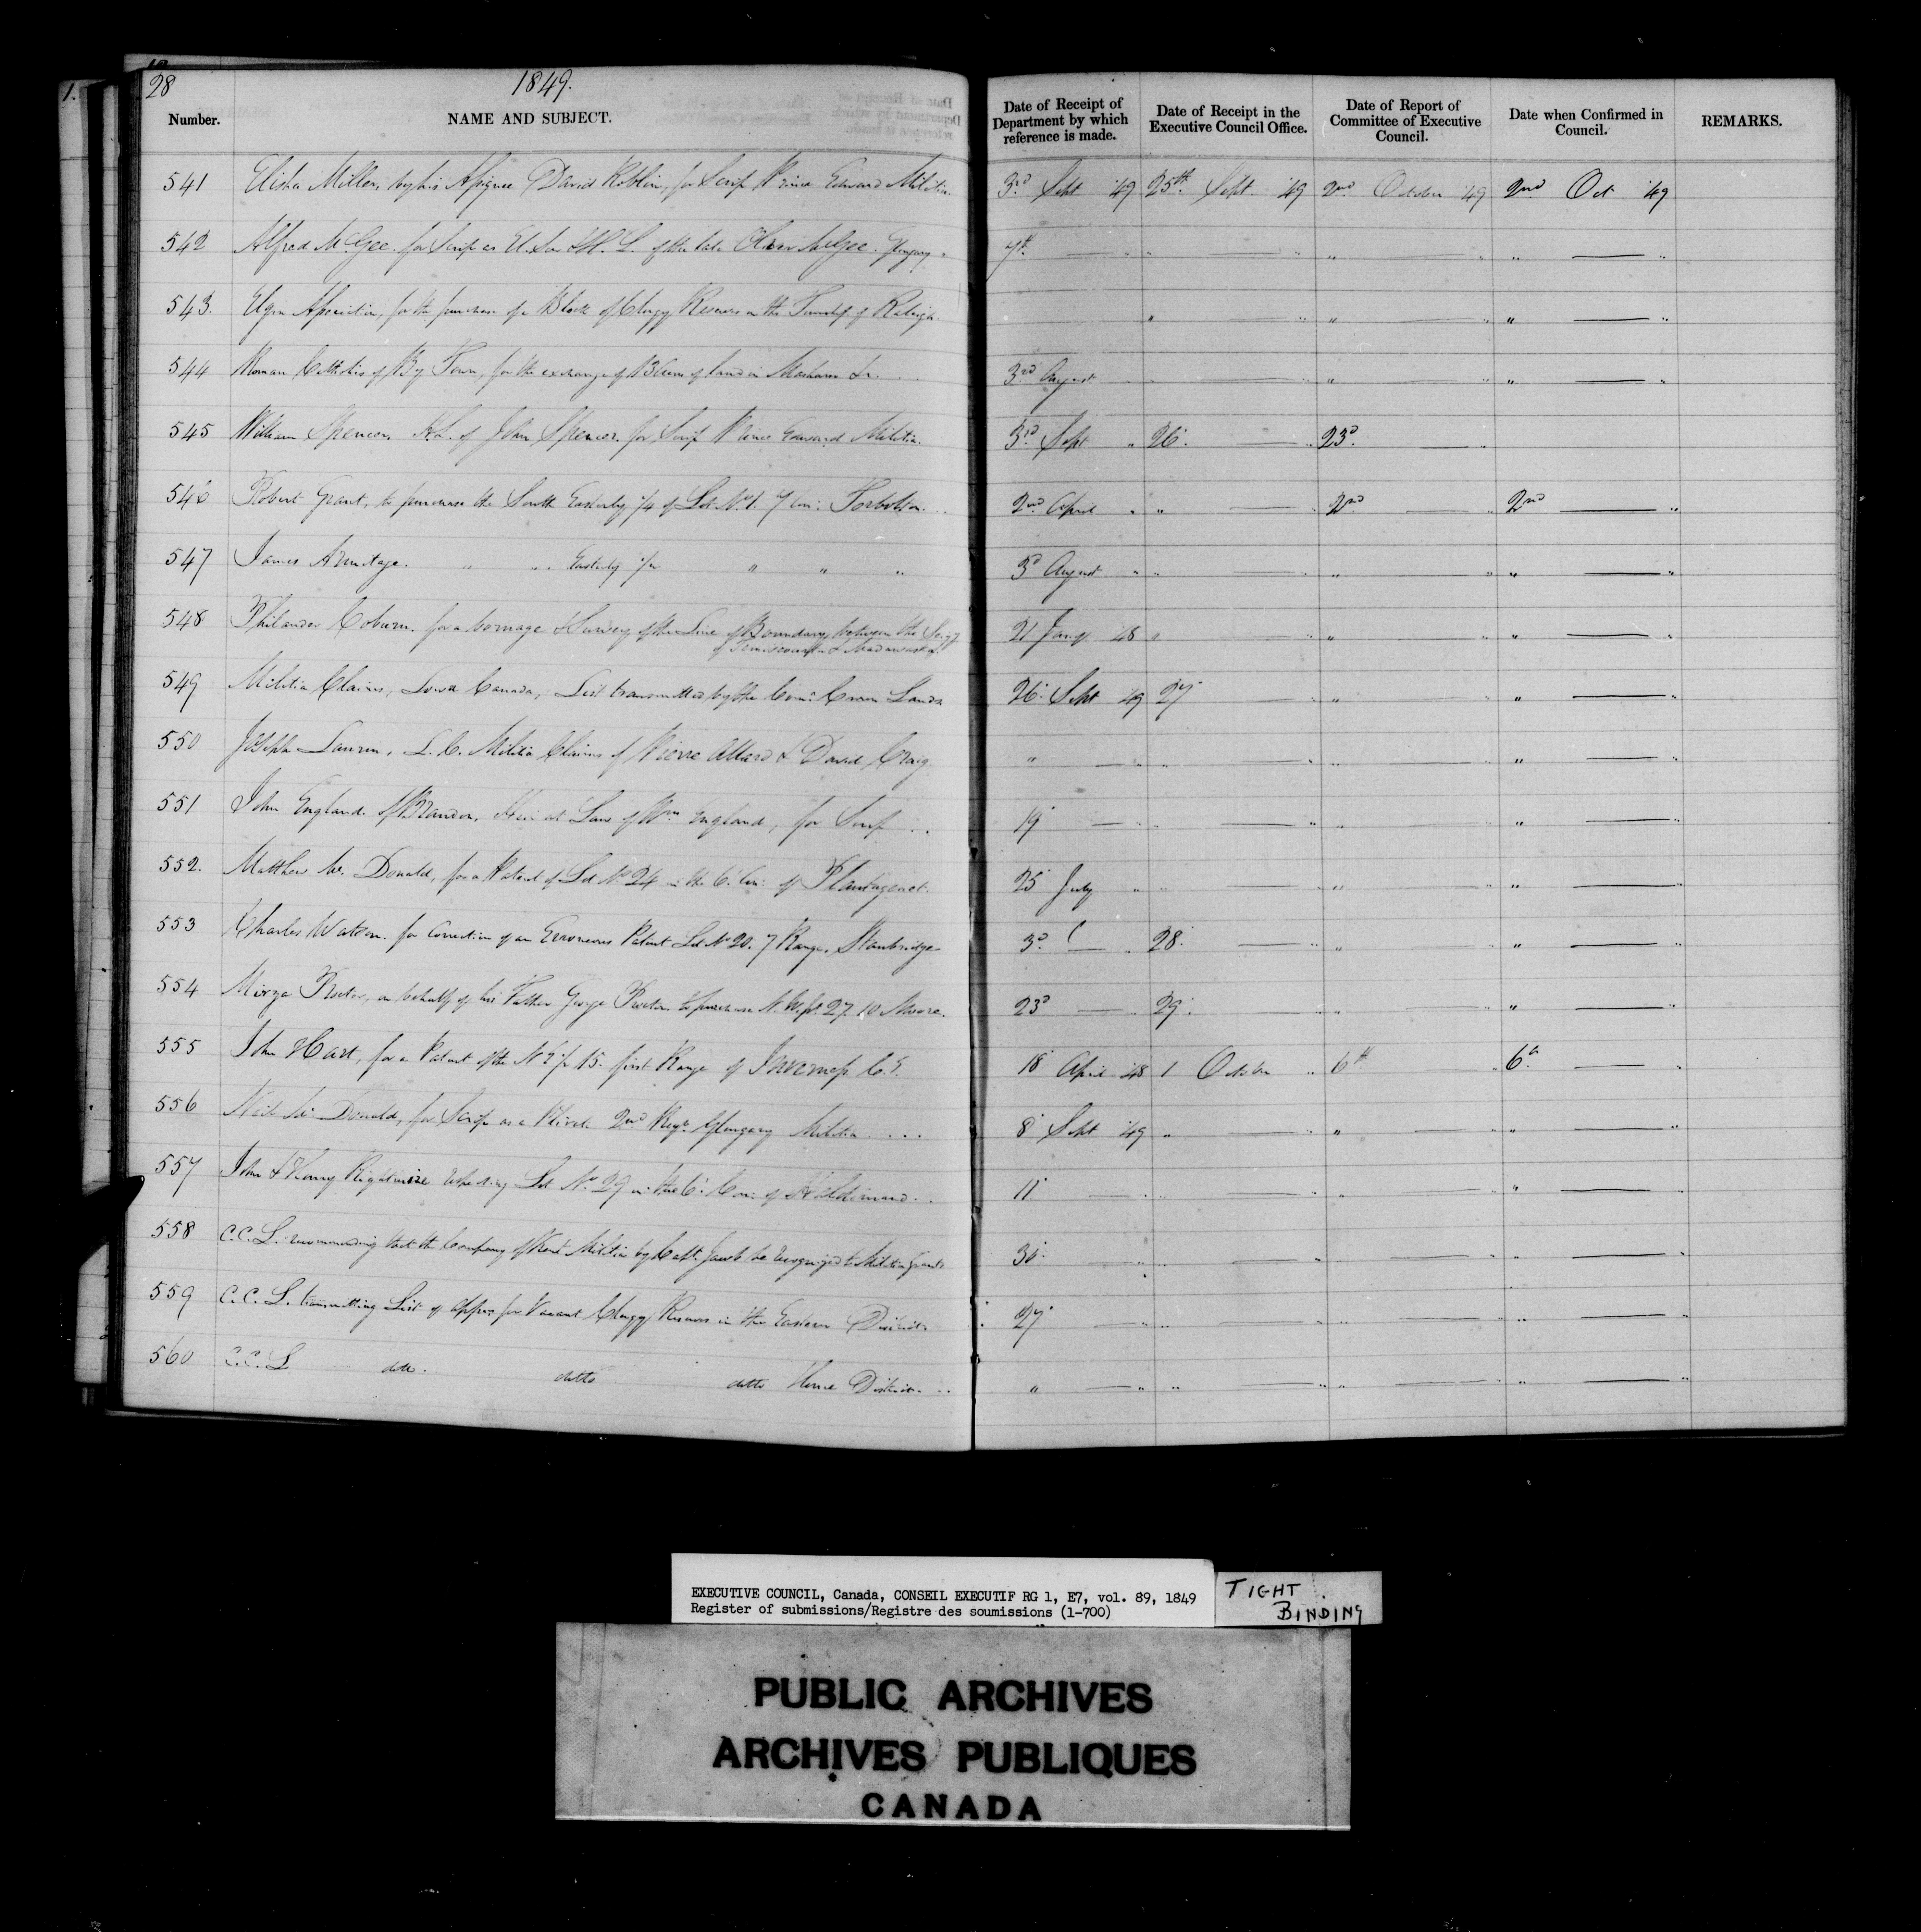 28
1849.
Number.
NAME AND SUBJECT.
Date of Receipt of Department by which reference is made.
Date of Receipt in the Executive Council Office.
Date of Report of Committee of Executive Council.
Date when Confirmed in Council.
REMARKS.
541 Elisha Miller, by his Assignee David Roblin, for Scrip Prince Edward Militia. 3rd Sept '49 25th Sept. '49 2nd October '49 2nd Oct '49
542 Alfred McGee. for Scrip as El. Son & H. L. of the late Oliver McGee. Glengary " 7th — " " — " " — " " — "
543. Elgin Association, for the purchase of a Block of Clergy Reserves in the Township of Raleigh. " — " " — " " — "
544 Roman Catholics of By Town, for the exchange of 13 Acres of land in Masham &c. 3rd August " " — " " — " " — "
545 William Spencer. H.L. of John Spencer. for Scrip Prince Edward Militia. 3rd Sept " 26. — " 23d — "
546 Robert Grant, to purchase the South Easterly 1/4 of Lot No 1. 7 Con: Torbolton. 2nd April " " — " 2nd — " 2nd — "
547 James Armitage. " " Easterly 1/2 " " " 3d August " " — " " — " " — "
548 Philander Coburn. for a bornage & Survey of the Line of Boundary between the
of Temiscouata & Madawaska. 21 Jany. '48 " — " " — " " — "
549 Militia Claims, Lower Canada, List transmitted by the Com: Crown Lands 26. Sept '49 27 — " " — " " — "
550 Joseph Laurin, L. C. Militia Claims of Pierre Allard & David Craig " — " " — " " — " " — "
551 John England. of Brandon, Heir at Law of Wm England, for Scrip 19 — " " — " " — " " — "
552. Matthew Mc Donald, for a Patent of Lot No 24 in the 6. Con: of Plantagenet. 25 July " " — " " — " " — "
553 Charles Watson. for Correction of an Erroneous Patent Lot No 20. 7 Range, Stanbridge 3d — " 28. — " " — " " — "
554 Mirza Proctor, on behalf of his Father George Proctor to purchase N. W. pt. 27. 10 Moore. 23d — " 29. — " " — " " — "
555 John Hart, for a Patent of the N 1/2 15. first Range of Inverness C. E. 18 April '48 1 October " 6th — " 6th — "
556 Neil Mc Donald, for Scrip as a Private 2nd Regt. Glengary Militia 8 Sept '49 " — " " — " " — "
557 John & Henry Rightmire respecting Lot No 29 in the 6. Con: of Haldimand 11 — " " — " " — " " — "
558 C. C. L. recommending that the Company of Kent Militia by Capt. Jacob be recognized to Militia Grants — " " — " " — " " — "
559 C. C. L. transmitting List of appns for Vacant Clergy Reserves in the Eastern District. 27 — " " — " " — " " — "
560 C. C. L ditto. ditto ditto Home District. " — " " — " " — " " — "
EXECUTIVE COUNCIL, Canada, CONSEIL EXECUTIF RG 1, E7, vol. 89, 1849
Register of submissions/Registre des soumissions (1-700)
TIGHT
BINDING
PUBLIC ARCHIVES
ARCHIVES PUBLIQUES
CANADA